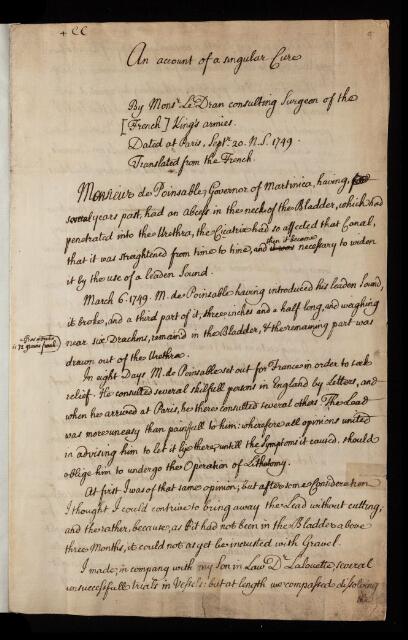 An account of a singular Cure
By Monsr. Le Dran consulting Surgeon of the
[French] King's armies.
Dated at Paris, Septr. 20. N.S. 1749.
Translated from the French.
Monsieur de Poinsable, Governor of Martinica, having,
several years past, had an abcess in the neck of the Bladder, which had
penetrated into the Urethra, the Cicatrix had so affected that Canal,
that it was straightened from time to time, and then it became necessary to widen
it by the use of a leaden Sound.
March 6. 1749. M. de Poinsable having introduced his leaden Sound,
it broke, and a third part of it, three inches and a half long, and weighing
near six Drachms, remained in the Bladder, & the remaining part was
drawn out of the Urethra.
In eight Days M. de Poinsable set out for France in order to seek
relief. He consulted several skilfull persons in England by Letters, and
when he arrived at Paris, he there consulted several others. The Lead
was more uneasy than painfull to him: wherefore all opinions united
in advising him to let it lye there, untill the symptoms it caused, should
oblige him to undergo the Operation of Lithotomy.
At first I was of that same opinion; but after some Consideration
I thought I could contrive to bring away the Lead without cutting;
and the rather, because, as it had not been in the Bladder above
three Months, it could not as yet be incrusted with Gravel.
I made, in company with my Son in Law Dr. Lalouette, several
unsuccessfull trials in Vessels: but at length we compassed dissolving